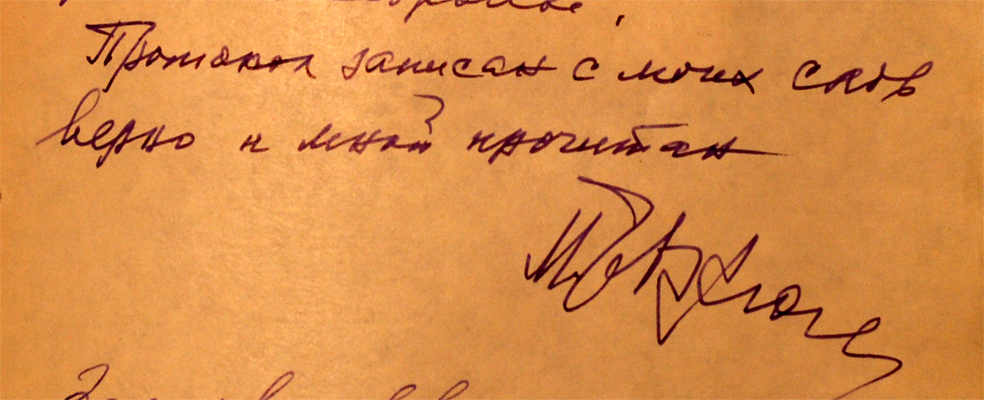 Протокол записан с моих слов
верно и мной прочитан